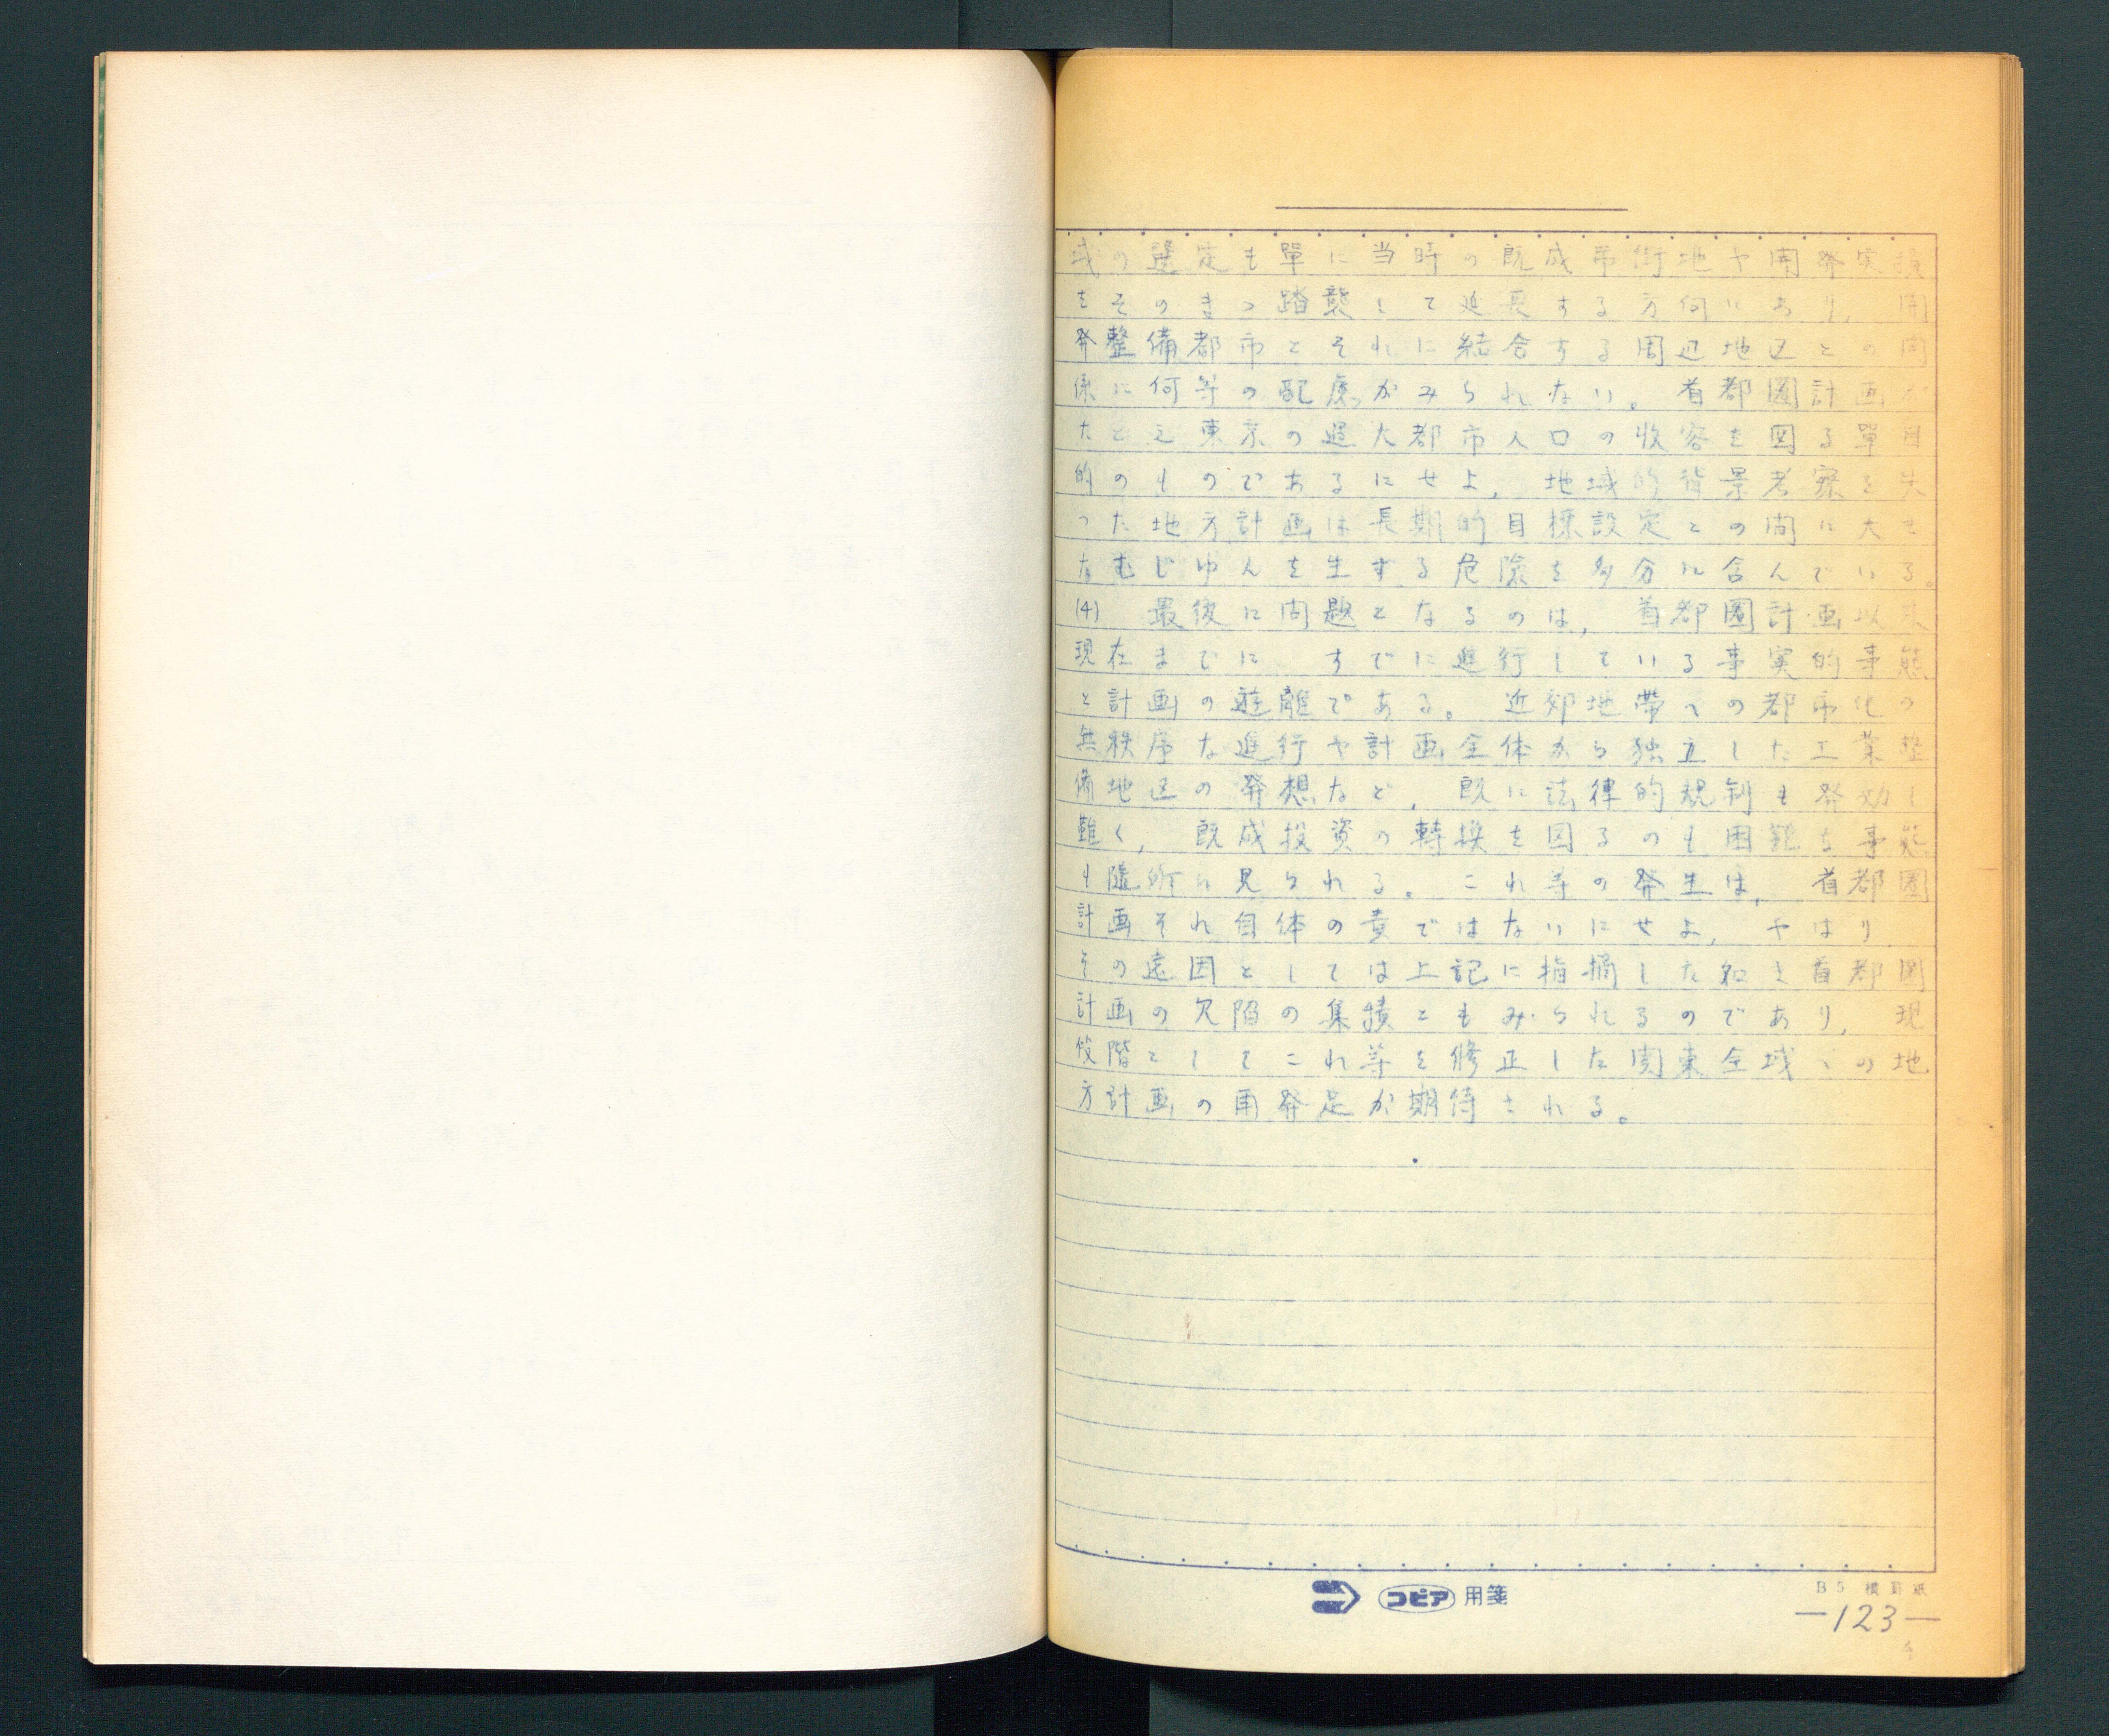 域の選定も單に当時の既成市街地や開発実績
をそのまゝ踏襲して延長する方向にあり，開
発整備都市とそれに結合する周辺地区との関
係に何等の配慮がみられない。首都圏計画が
たとえ東京の過大都市人口の收容を図る單目
的のものであるにせよ，地域的背景考察を失
った地方計画は長期的目標設定との間に大き
なむじゆんを生ずる危険を多分に含んでいる。
(4) 最後に問題となるのは，首都圏計画以来
現在までに すでに進行している事実的事態
と計画の遊離である。近郊地帯への都市化の
無秩序な進行や計画全体から独立した工業整
備地区の発想など，既に法律的規制も発効し
難く，既成投資の轉換を図るのも困難な事態
も隨所に見られる。これ等の発生は，首都圏
計画それ自体の責ではないにせよ，やはり，
その遠因としては上記に指摘した如き首都圏
計画の欠陥の集積ともみられるのであり，現
段階としてこれ等を修正した関東全域への地
方計画の再発足が期待される。
コピア 用箋
B5 横罫紙
—123—